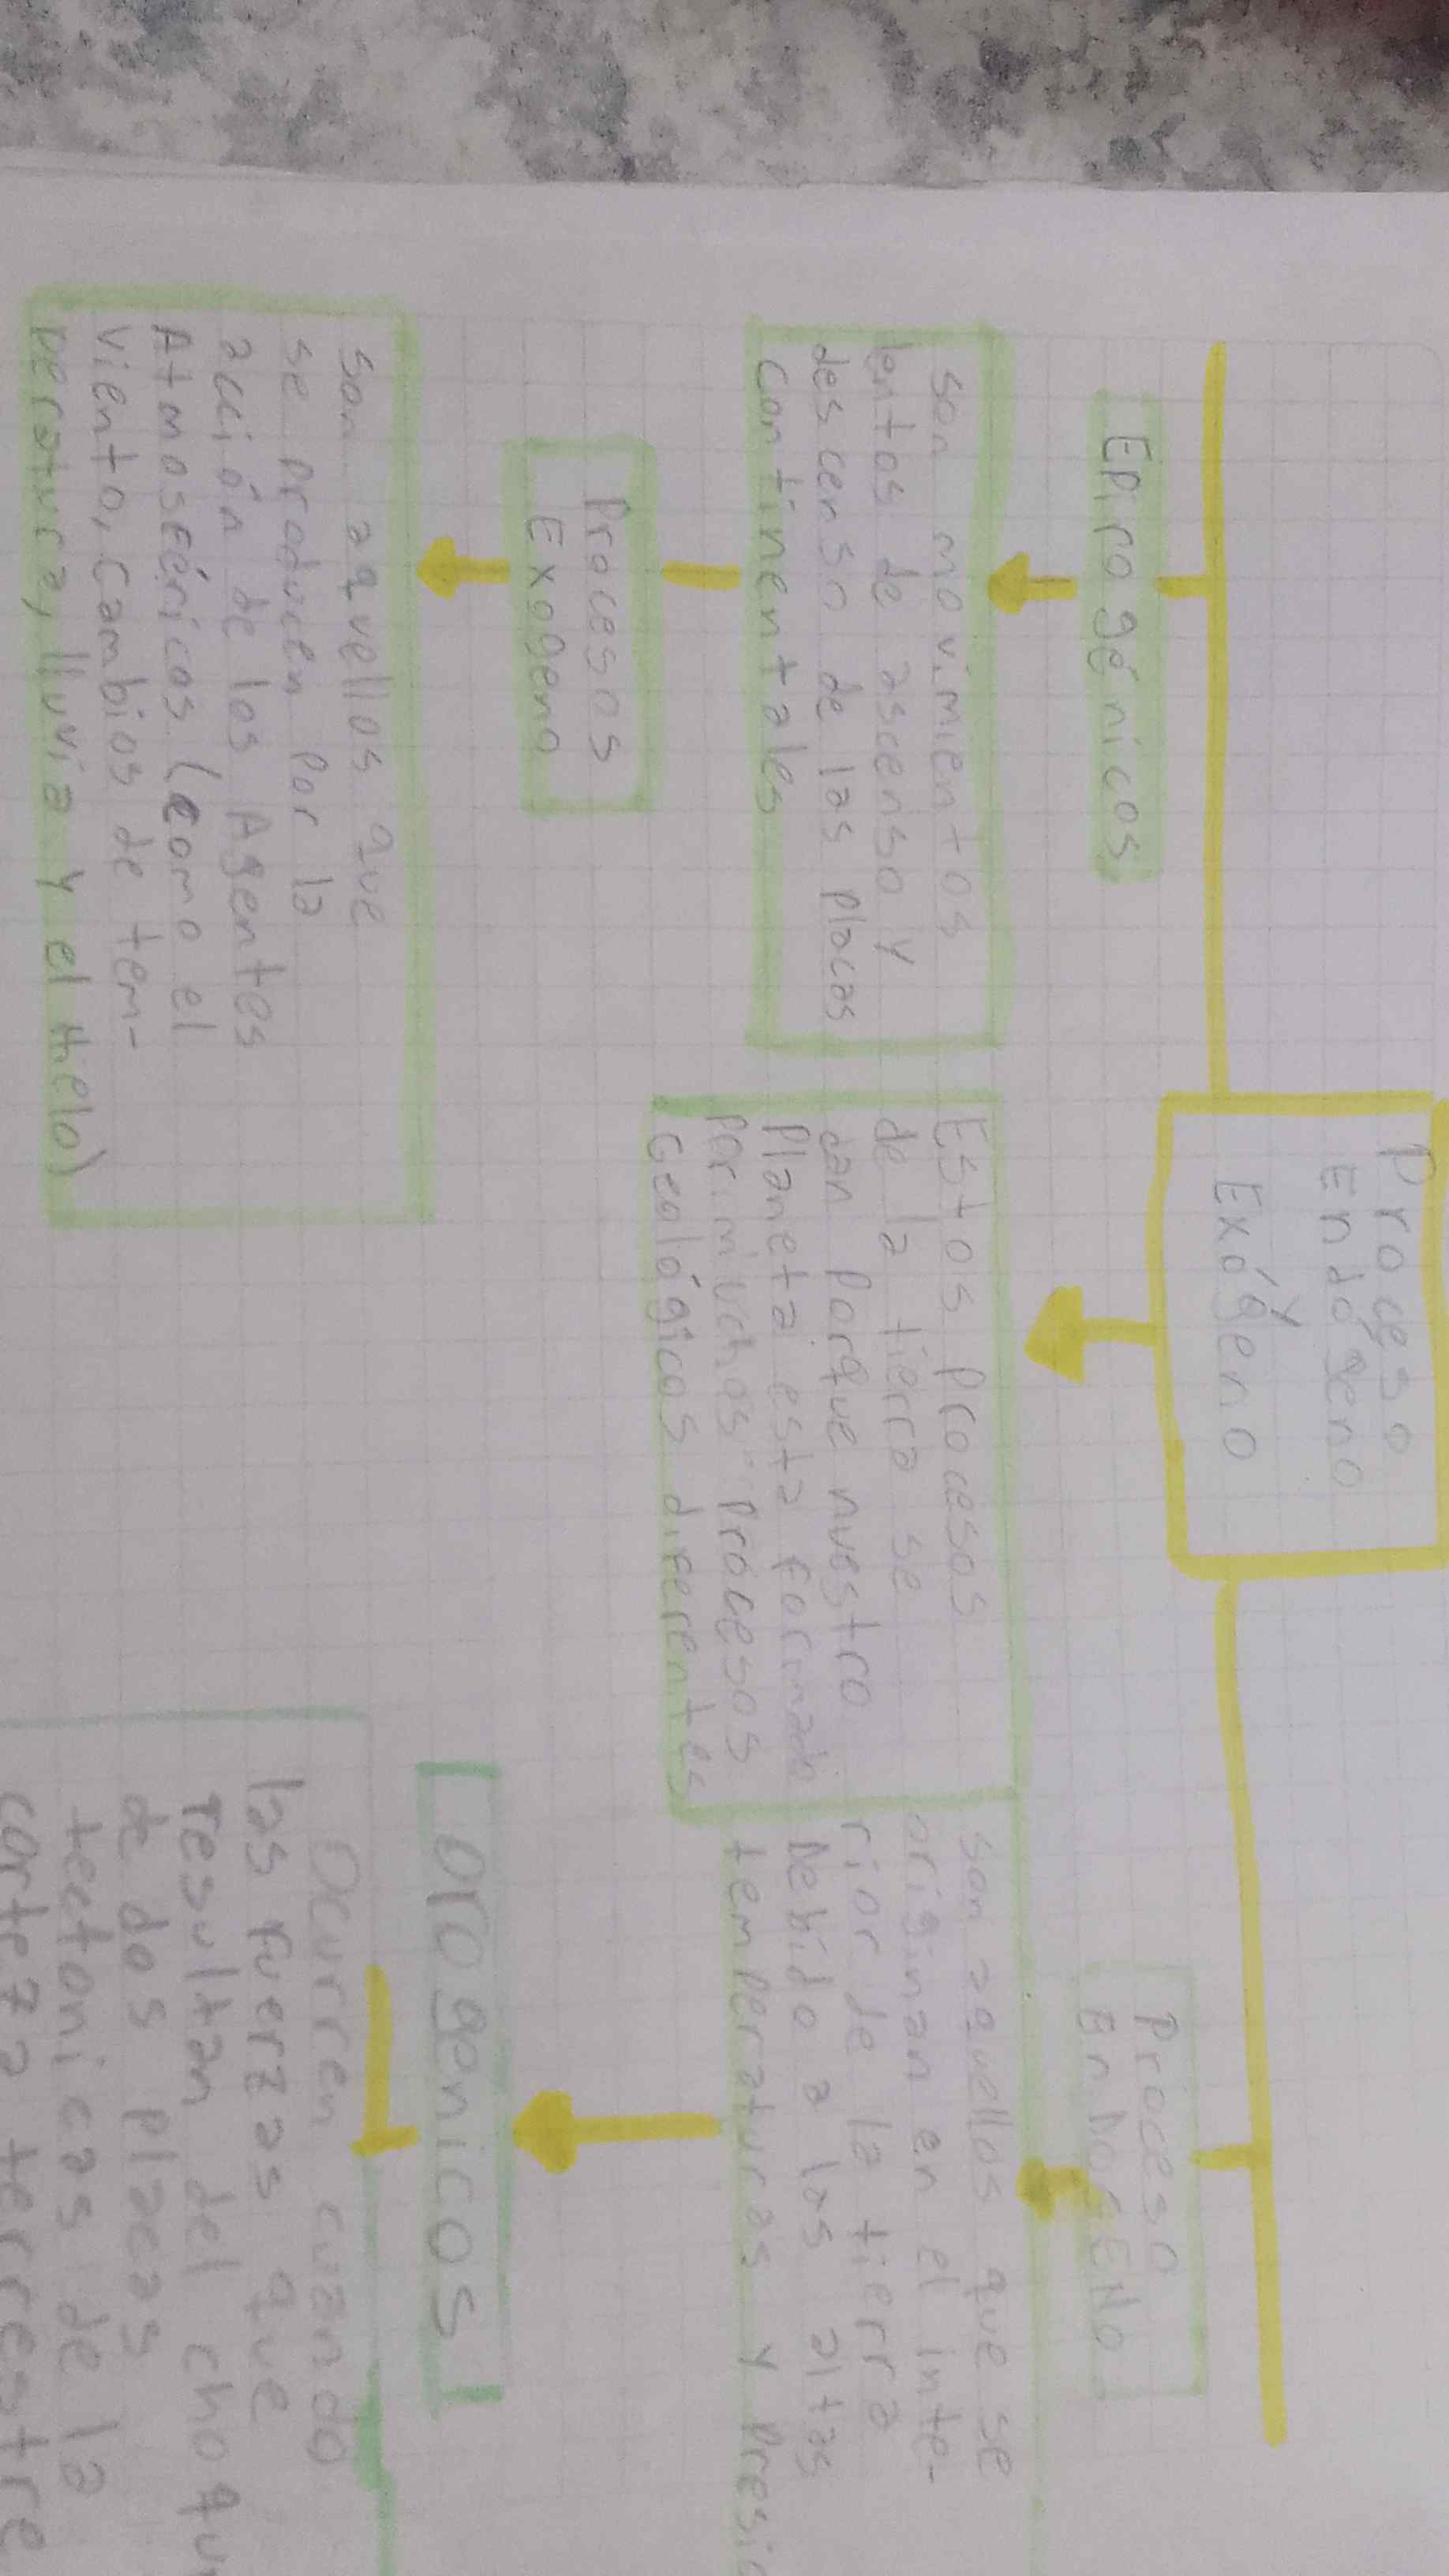 Proceso
Endógeno
y
Exógeno
Epirogénicos
son movimientos
lentos de ascenso y
descenso de las placas
continentales
Procesos
Exogeno
son aquellos que
se producen por la
acción de los Agentes
Atmosféricos (como el
viento, cambios de tem-
peratura, lluvia y el hielo)
Estos procesos
de la tierra se
dan porque nuestro
planeta esta formado
por muchos procesos
Geológicos diferentes
Proceso
EnDoGENo
son aquellos que se
originan en el inte-
rior de la tierra
Debido a las altas
temperaturas y presio
orogenicos
Ocurren cuando
las fuerzas que
resultan del choque
de dos placas
tectonicas de la
corteza terrestre